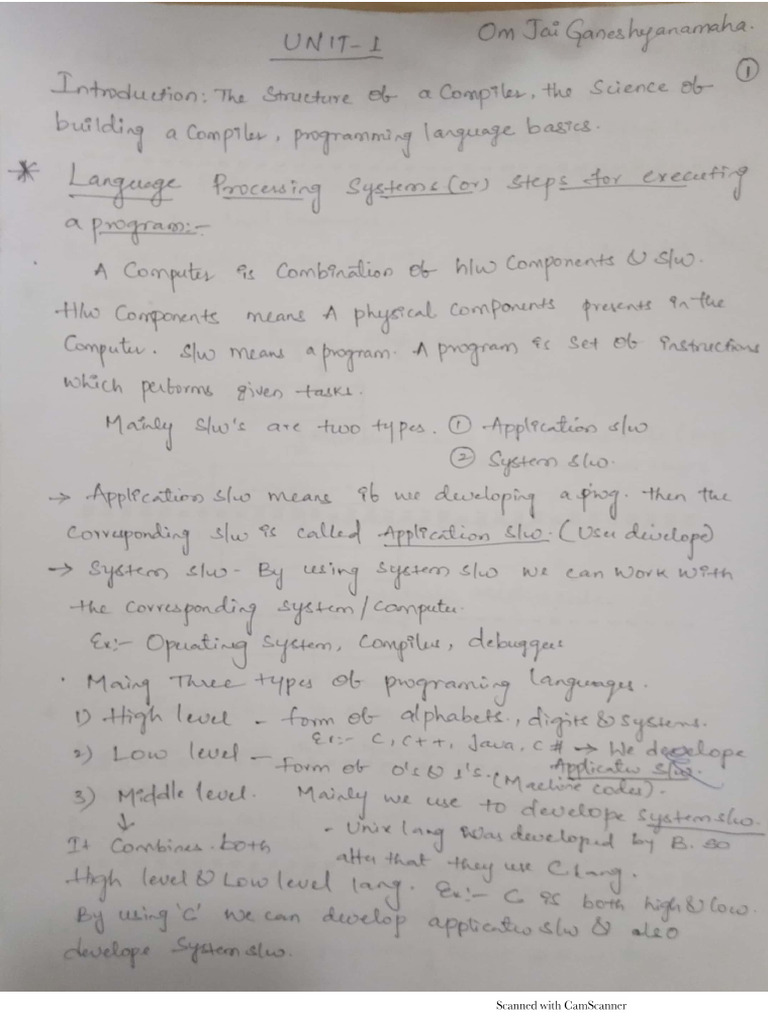 Om Jai Ganeshyanamaha.
UNIT-1
①
Introduction: The Structure of a Compiler, the Science of
building a Compiler, programming language basics.
* Language Processing Systems (or) Steps for executing
a program:-
A Computer is Combination of h/w Components & s/w.
H/w Components means A physical components presents in the
Computer. s/w means a program. A program is set of instructions
which performs given tasks.
Mainly s/w's are two types. ① Application s/w
② System s/w.
→ Application s/w means if we developing a prog. then the
corresponding s/w is called Application s/w. (User develope)
→ System s/w - By using system s/w we can work with
the corresponding system/computer.
Ex:- Operating system, compiler, debuggers
. Maing Three types of programing languages.
1) High level - form of alphabets, digits & systems.
Ex:- C, C++, Java, C# → We develope
Applicatio s/w.
2) Low level - form of 0's & 1's. (Machine codes).
3) Middle level. Mainly we use to develope system s/w.
↓ - Unix lang was developed by B. so
after that they use C lang.
It Combines both
High level & Low level lang. Ex:- C is both high & low.
By using 'C' we can develop applicatio s/w & also
develope System s/w.
Scanned with CamScanner